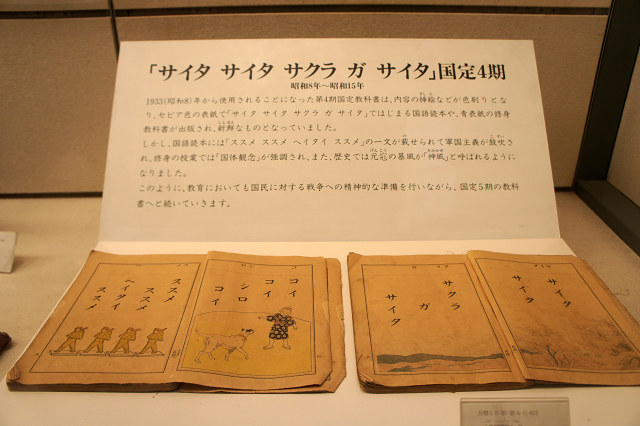 「サイタ サイタ サクラ ガ サイタ」国定4期
昭和8年～昭和15年
1933(昭和8)年から使用されることになった第4期国定教科書は、内容の挿絵などが色刷りとな
り、セピア色の表紙で「サイタ サイタ サクラ ガ サイタ」ではじまる国語読本や、青表紙の修身
教科書が出版され、新鮮なものとなっていました。
しかし、国語読本には「ススメ ススメ ヘイタイ ススメ」の一文が載せられて軍国主義が鼓吹さ
れ、修身の授業では「国体観念」が強調され、また、歴史では元寇の暴風が「神風」と呼ばれるように
なりました。
このように、教育においても国民に対する戦争への精神的な準備を行いながら、国定5期の教科
書へと続いていきます。
コイ
コイ
シロ
コイ
ススメ
ススメ
ヘイタイ
ススメ
サイタ
サイタ
サクラ
ガ
サイタ